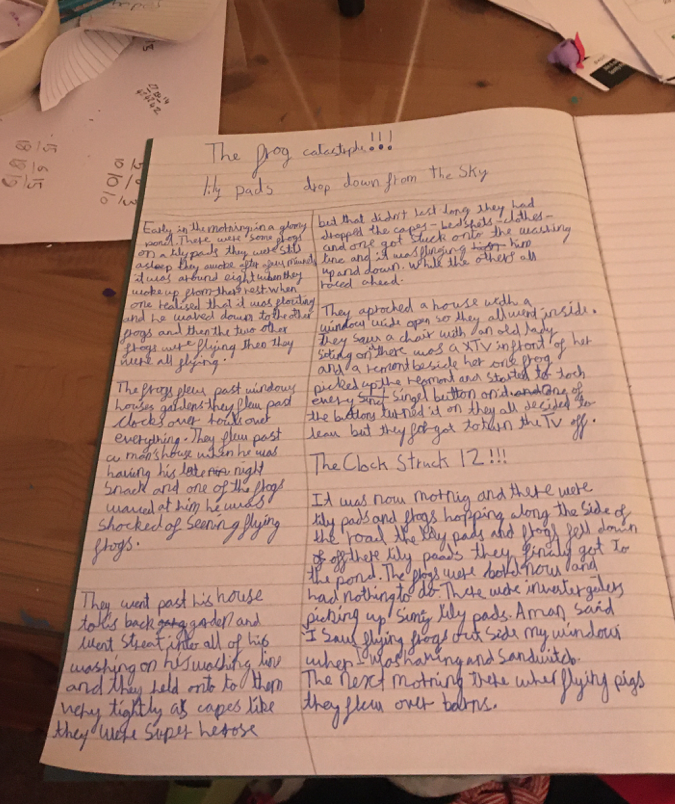 The frog catastrphe!!!
lily pads drop down from the sky
Early in the morning in a gloomy
pond. There were some frogs
on a lily pads they were still
asleep they awoke after
it was around eight when they
woke up from there rest when
one realised that it was floating
and he waved down to the other
frogs and then the two other
frogs were flying then they
were all flying.
The frogs flew past windows
houses gardens they flew past
clocks over
everything. They flew past
a mans house when he was
having his late night
snack and one of the frogs
waved at him he was
shocked of seening flying
frogs.
They went past his house
to his back garden and
went streat into all of his
washing on his washing line
and they held onto to them
very tightly as capes like
they were super herose
but that didn't last long they had
dropped the capes - bedshets - clothes -
and one got stuck onto the washing
line and it was flinging him
up and down. While the others all
raced ahead.
They aproched a house with a
window wide open so they all went inside.
they saw a chair with an old lady
siting on there was a TV in front of her
and a remont beside her one frog
picked up the remont and started to toch
every singel button on it and one of
the buttons turned it on they all decided to
leav but they forgot to turn the TV off.
The Clock Struck 12!!!
It was now mornig and there were
lily pads and frogs hopping along the side of
the road the lily pads and frogs fell down
of off there lily paads they finaly got to
the pond. The frogs were bord now and
had nothing to do. There were
picking up lily pads. A man said
I saw flying frogs out side my window
when I was having and sandwitch.
The next morning there wher flying pigs
they flew over barns.